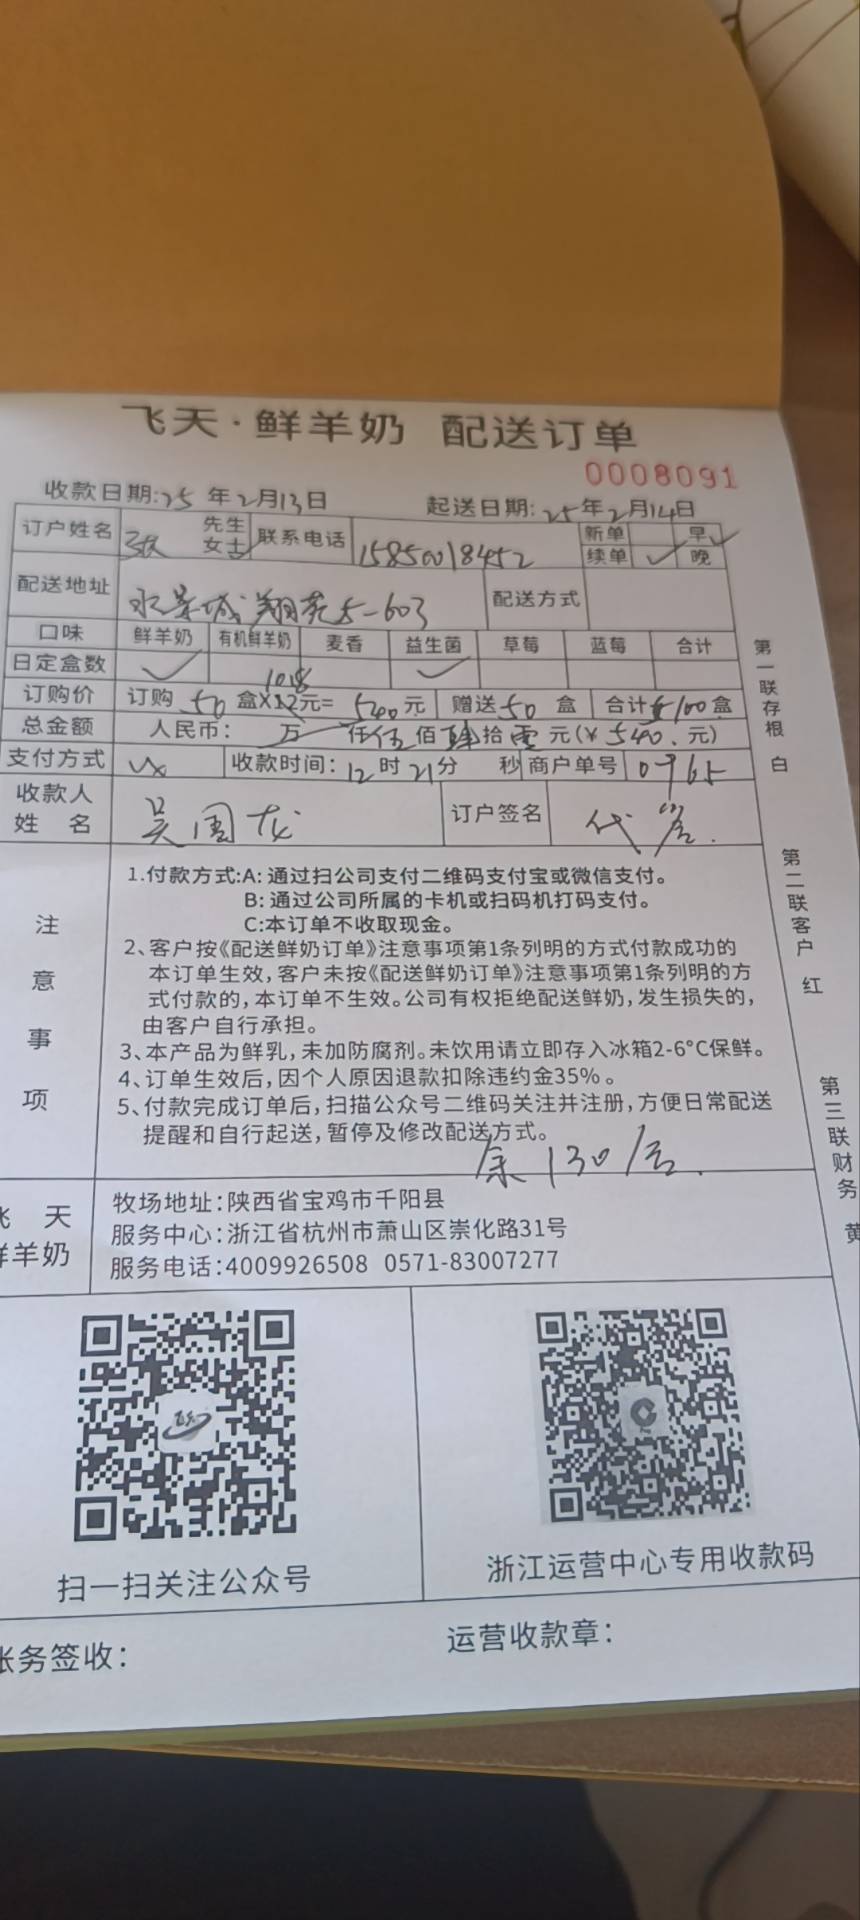 飞天·鲜羊奶 配送订单
0008091
收款日期:25年2月13日 起送日期:25年2月14日
订户姓名 张 先生 女士✓ 联系电话 15850018452 新单 早✓
续单 ✓ 晚
配送地址 水景城翔苑5-603 配送方式
口味 鲜羊奶 有机鲜羊奶 麦香 益生菌 草莓 蓝莓 合计
日定盒数 ✓ ✓
10.8
订购价 订购50盒×12元=540元 赠送50盒 合计100盒
总金额 人民币: 万 仟伍佰肆拾零元(¥540.元)
支付方式 vx 收款时间:12时21分 秒 商户单号 0765
收款人姓名 吴国龙 订户签名 代签.
注意事项
1.付款方式:A:通过扫公司支付二维码支付宝或微信支付。
B:通过公司所属的卡机或扫码机打码支付。
C:本订单不收取现金。
2、客户按《配送鲜奶订单》注意事项第1条列明的方式付款成功的
本订单生效,客户未按《配送鲜奶订单》注意事项第1条列明的方
式付款的,本订单不生效。公司有权拒绝配送鲜奶,发生损失的,
由客户自行承担。
3、本产品为鲜乳,未加防腐剂。未饮用请立即存入冰箱2-6°C保鲜。
4、订单生效后,因个人原因退款扣除违约金35%。
5、付款完成订单后,扫描公众号二维码关注并注册,方便日常配送
提醒和自行起送,暂停及修改配送方式。
余130/盒.
飞天
鲜羊奶
牧场地址:陕西省宝鸡市千阳县
服务中心:浙江省杭州市萧山区崇化路31号
服务电话:4009926508 0571-83007277
扫一扫关注公众号
浙江运营中心专用收款码
账务签收:
运营收款章:
第一联存根 白
第二联客户 红
第三联财务 黄